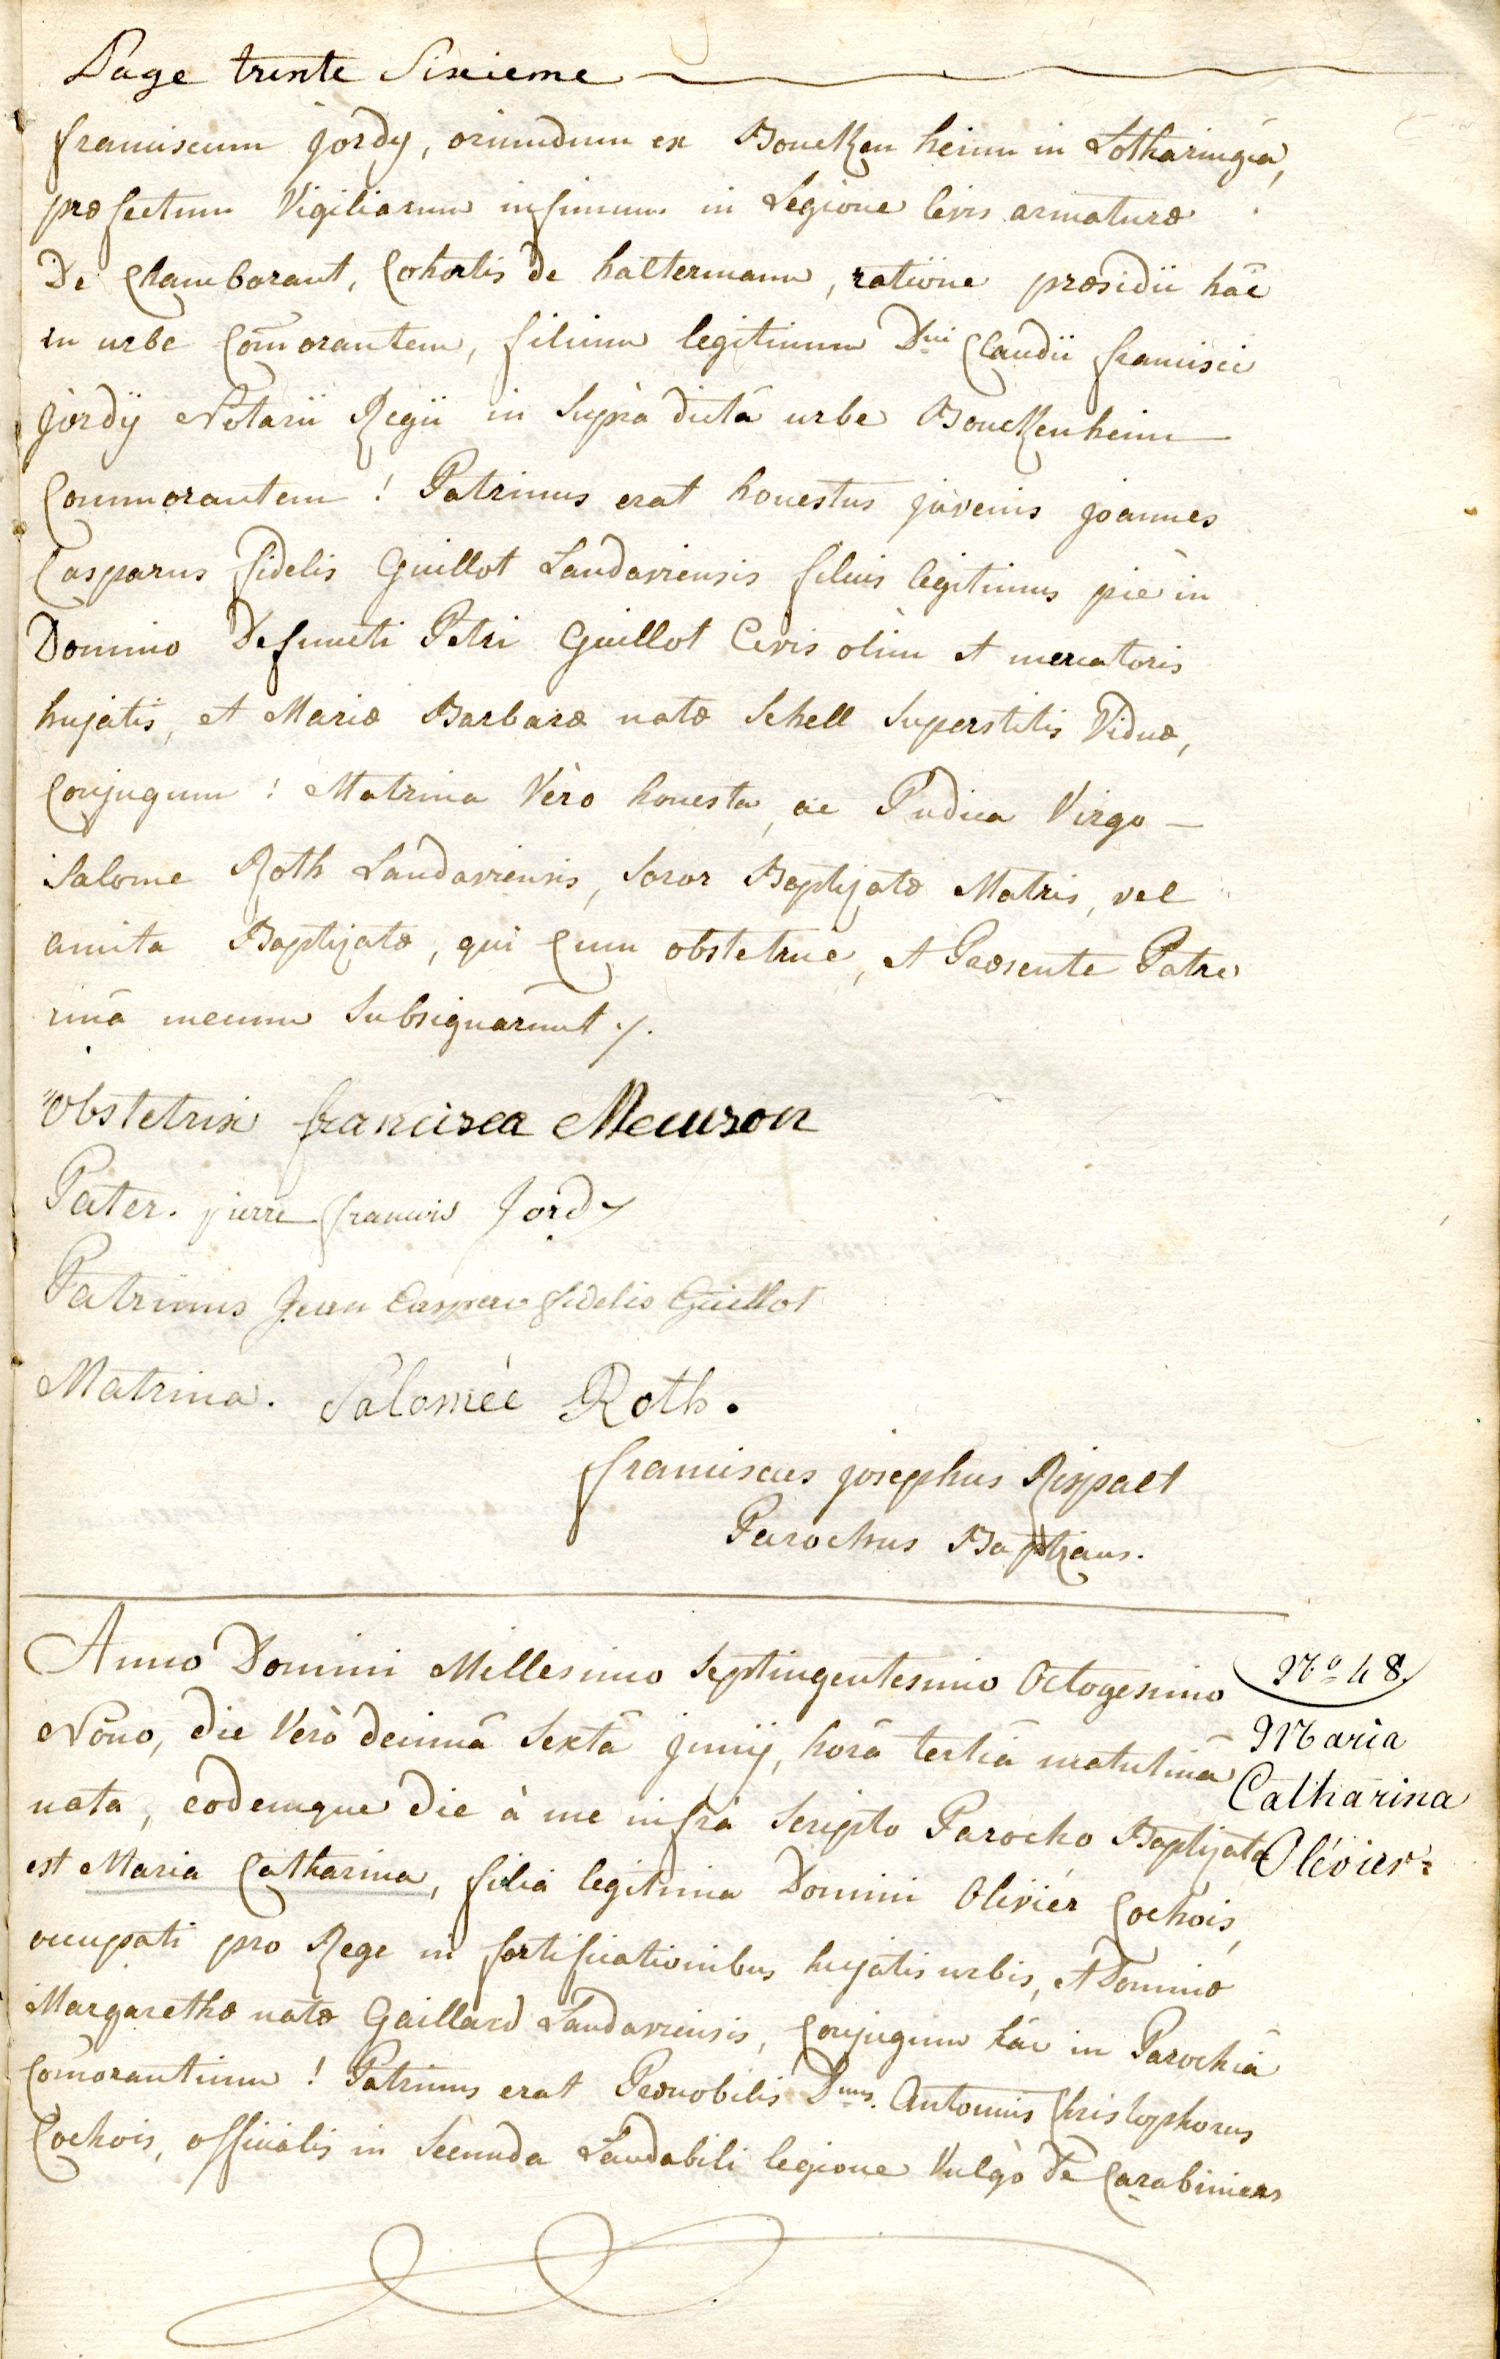 Page trente Sixieme
franciscum jordy, oriundum ex Bouckenheim in Lotharingiâ,
præfectum Vigiliarum infimum in Legione levis armaturæ
De Chamborant, Cohortis de haltermann, ratiöne præsidii hâc
in urbe Com̃orantem, filium legitimum Dni Claudii francisci
jordÿ Notarii Regii in Suprà dictâ urbe Bouckenheim
Commorantem ! Patrinus erat honestus juvenis joannes
Casparus fidelis Guillot Landaviensis filius legitimus piè in
Domino Defuncti Petri Guillot Civis olim et mercatoris
hujatis, et Mariæ Barbaræ natæ Schell Superstitis Viduæ,
Conjugum ! Matrina Vèro honesta, ac Pudica Virgo
Salome Roth Landaviensis, Soror Baptizatæ Matris, vel
amita Baptizatæ, qui Cum obstetrice, et Præsente Patre
unâ mecum Subsignarunt ./.
Obstetrix francisca Meuson
Pater. pierre francois Jordy
Patrinus Jean Caspare fidelis Guillot
Matrina. Salomée Roth.
franciscus josephus Rispalt
Parochus Baptizans.
Anno Domini Millesimo Septingentesimo Octogesimo
Nono, die Verò decimâ Sextâ junij, horâ tertiâ matutinâ
nata, eodemque die à me infrà Scripto Parocho Baptizata
est Maria Catharina, filia legitima Domini Olivièr Cochois,
occupati pro Rege in fortificationibus hujatis urbis, et Dominæ
Margarethæ natæ Gaillard Landaviensis, Conjugum hâc in Parochiâ
Com̃orantium ! Patrinus erat Prænobilis Dnus. Antonius Christophorus
Cochois, officialis in Secunda Laudabili legione Vulgò De Carabiniers
No 48.
Maria
Catharina
Olévier